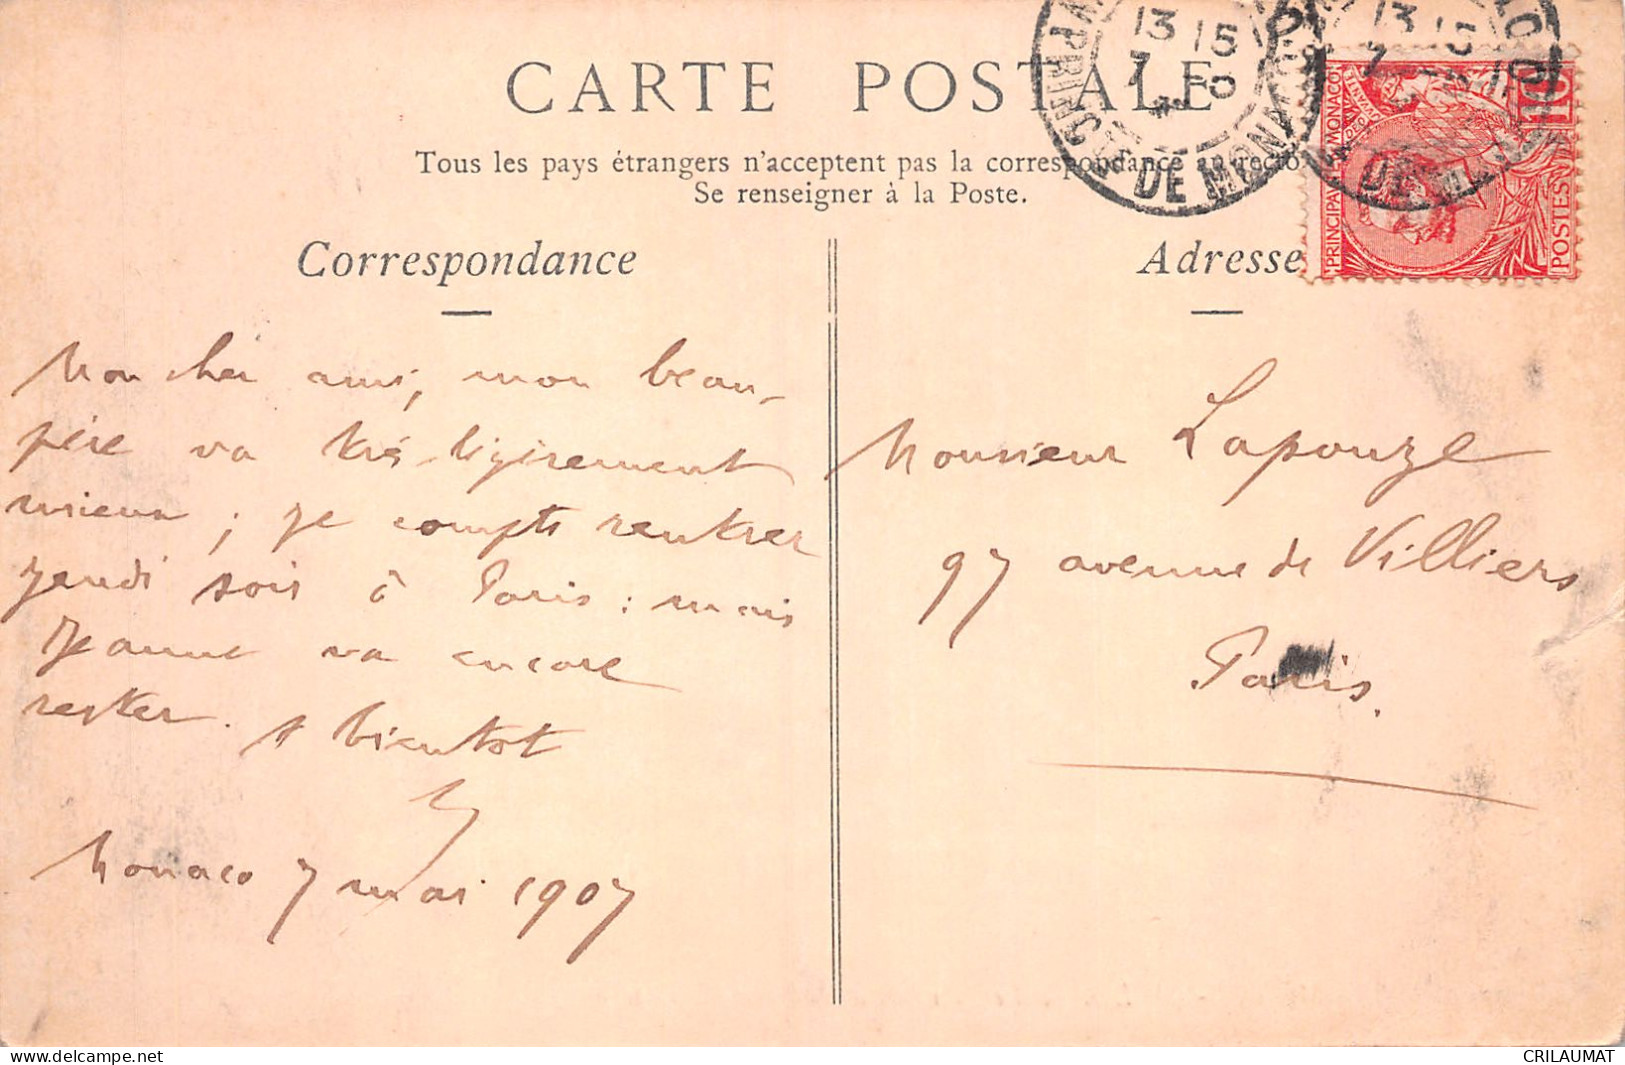 CARTE POSTALE
Tous les pays étrangers n'acceptent pas la correspondance au recto
Se renseigner à la Poste.
Correspondance
Mon cher ami, mon beau-
père va très légèrement
mieux ; je compte rentrer
jeudi soir à Paris : mais
Jeanne va encore
rester. A bientot
Monaco 7 mai 1907
Adresse
Monsieur Lapouze
97 avenue de Villiers
Paris.
13 15
7
PRINCIPAUTÉ DE MONACO
13 15
7
PRINCIPAUTÉ DE MONACO
10
POSTES
CRILAUMAT